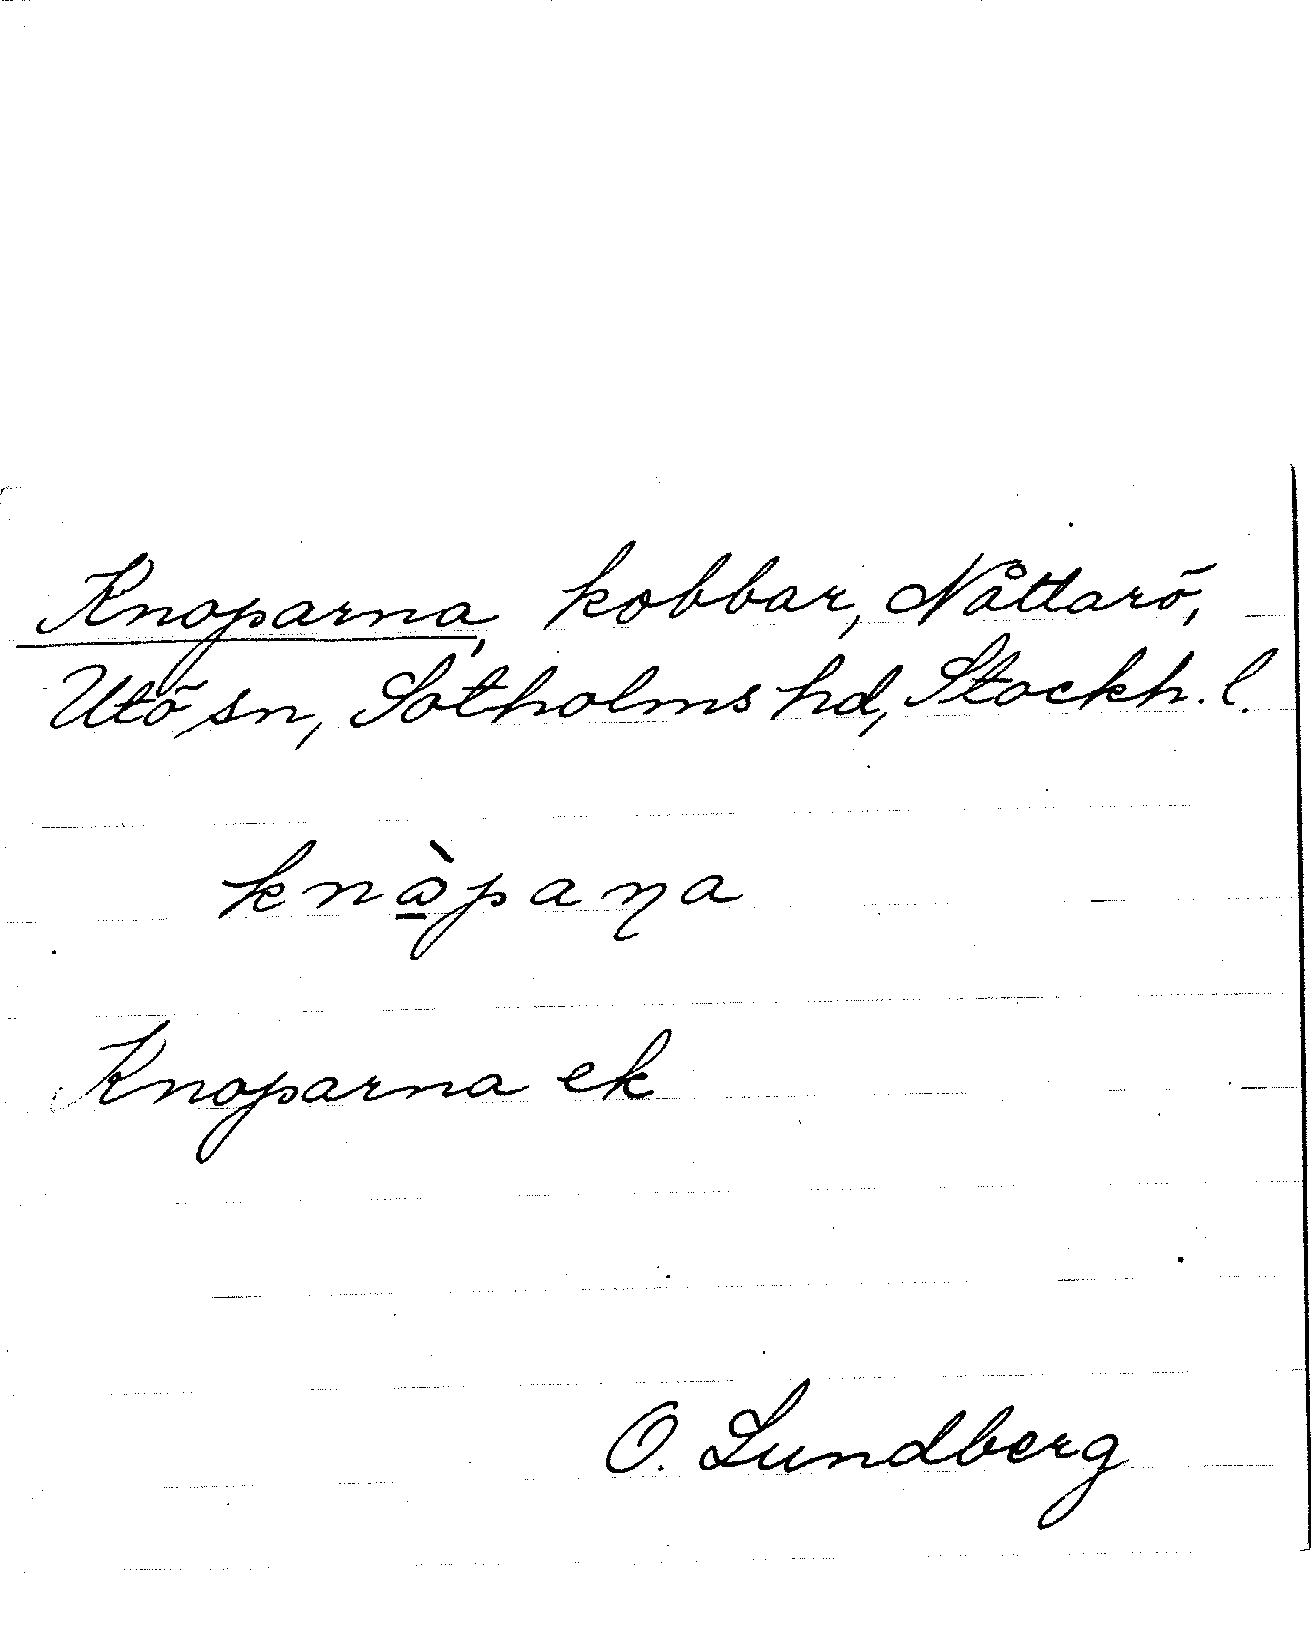 Knoparna, kobbar, Nåttarö,
Utö sn, Sotholms hd, Stockh. l.
knὼ̲paɳa
Knoparna ek
O. Lundberg